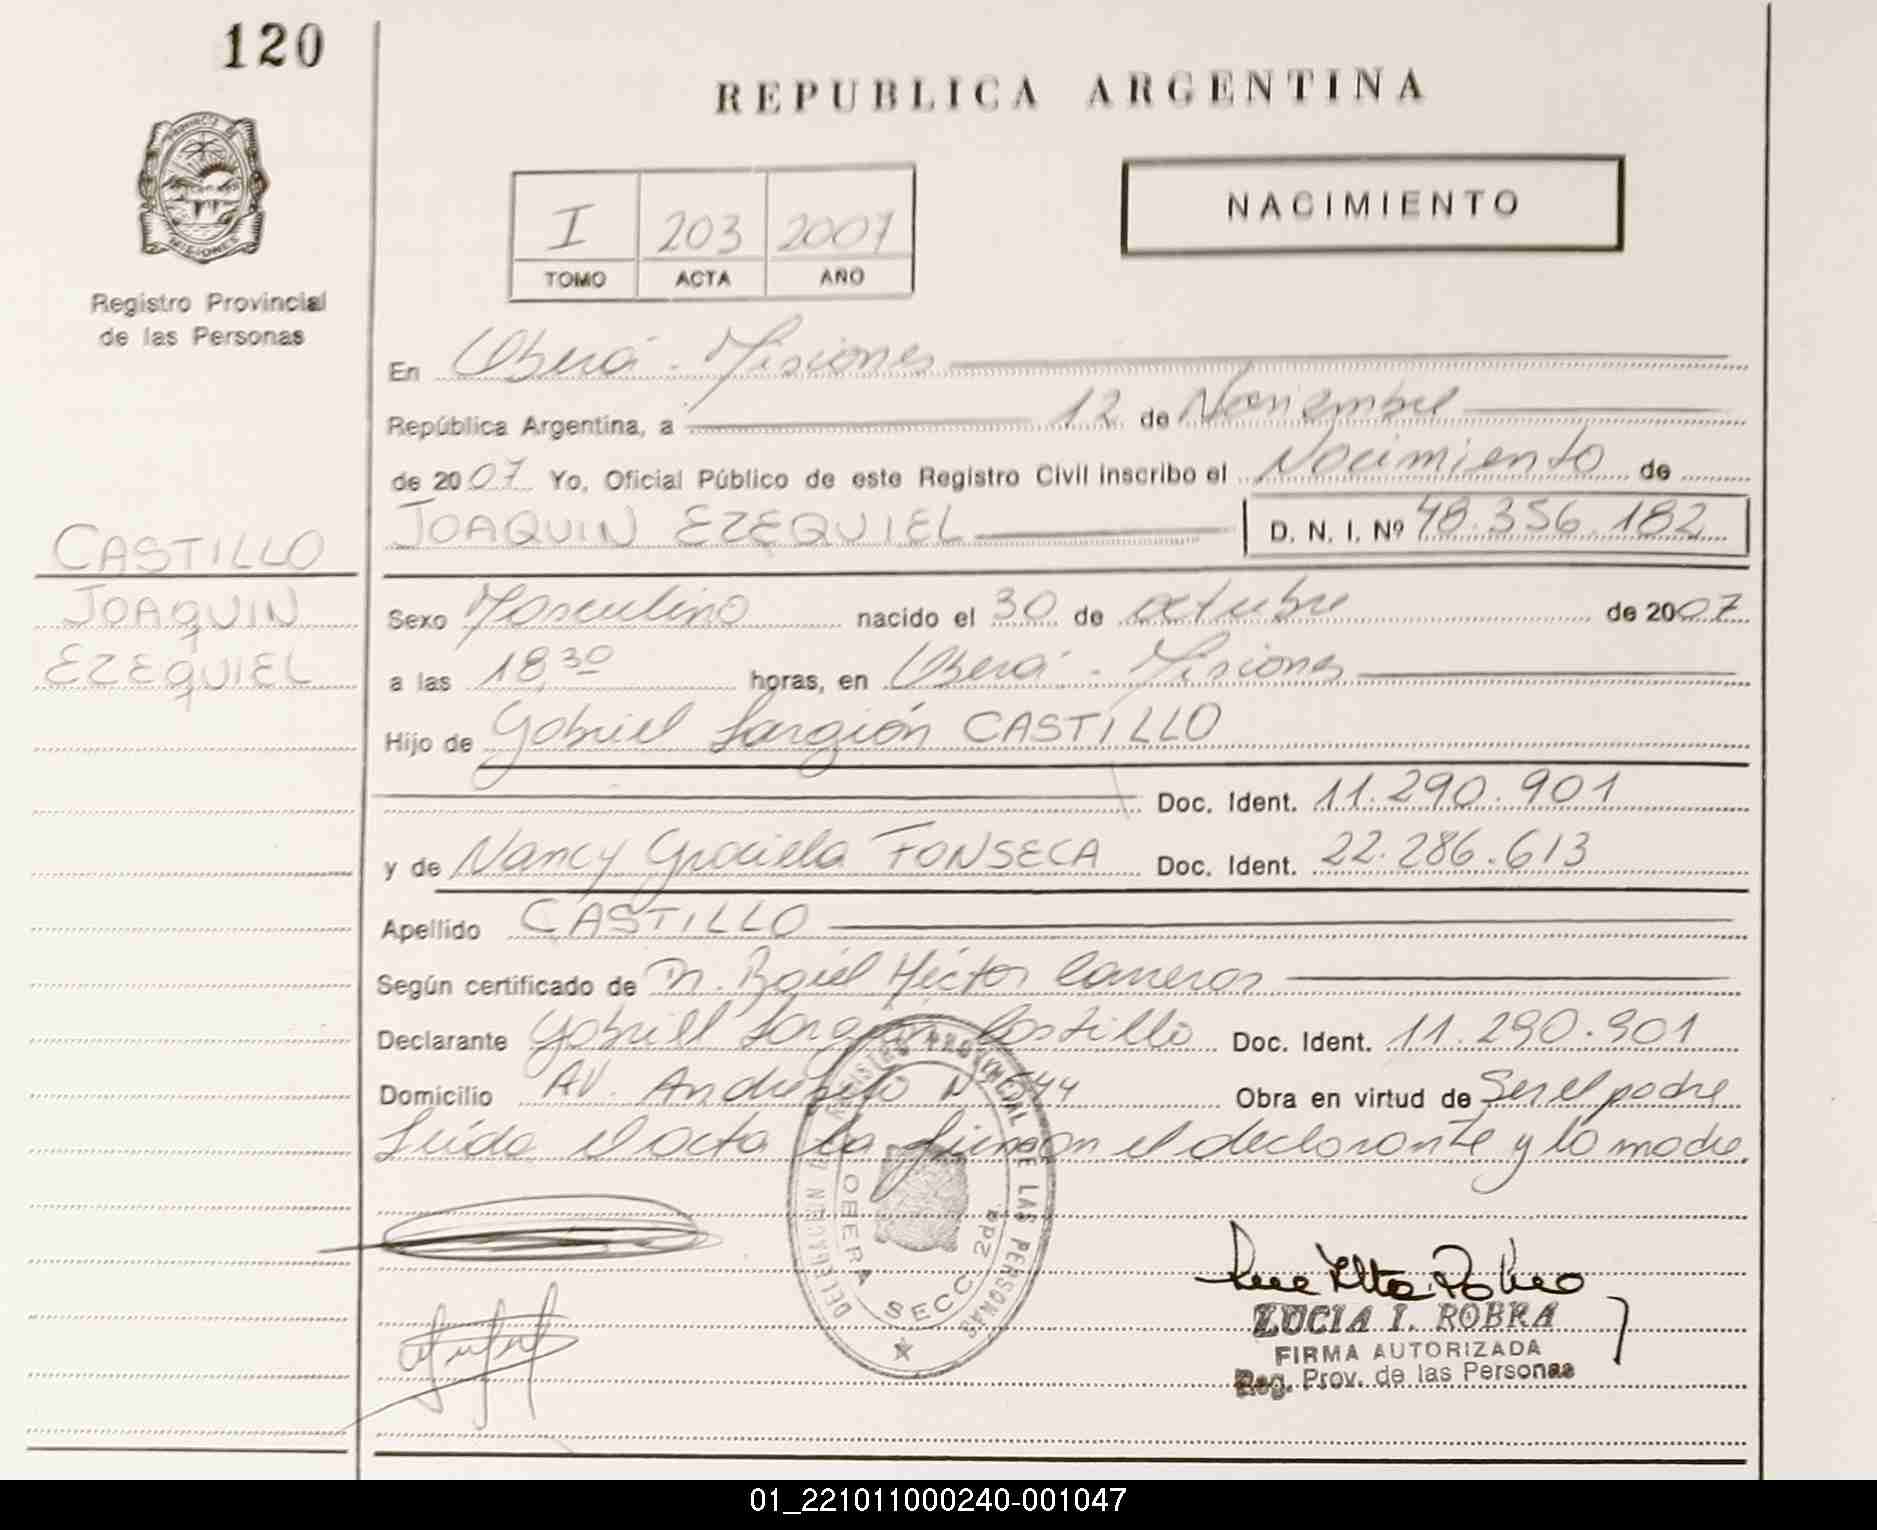 120
REPUBLICA ARGENTINA
PROVINCIA DE
MISIONES
I 203 2007
TOMO ACTA AÑO
NACIMIENTO
Registro Provincial
de las Personas
En Oberá - Misiones
República Argentina, a 12 de Noviembre
de 2007 Yo, Oficial Público de este Registro Civil inscribo el Nacimiento de
JOAQUIN EZEQUIEL D. N. I. Nº 48.356.182
CASTILLO
JOAQUIN
EZEQUIEL
Sexo Masculino nacido el 30 de octubre de 2007
a las 18,30 horas, en Oberá - Misiones
Hijo de Gabriel Sargión CASTILLO
Doc. Ident. 11.290.901
y de Nancy Graciela FONSECA Doc. Ident. 22.286.613
Apellido CASTILLO
Según certificado de Dr. Raúl Héctor Carreras
Declarante Gabriel Sargión Castillo Doc. Ident. 11.290.901
Domicilio AV. Andresito Nº 544 Obra en virtud de Ser el padre
Leída el acta la firman el declarante y la madre.
REGISTRO PROVINCIAL DE LAS PERSONAS
OBERA SECC. 2da
LUCIA I. ROBRA
FIRMA AUTORIZADA
Reg. Prov. de las Personas
01_221011000240-001047